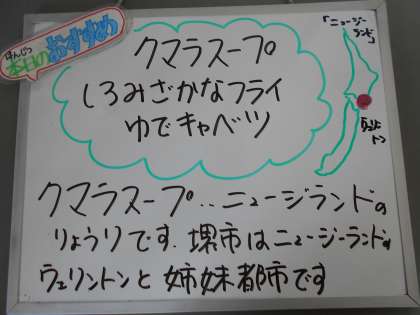 ほんじつ
本日のおすすめ
「ニュージー
ランド」
クマラスープ
しろみざかなフライ
ゆでキャベツ
クマラスープ‥ニュージランドの
りょうりです.堺市はニュージーランドの
ウェリントンと姉妹都市です